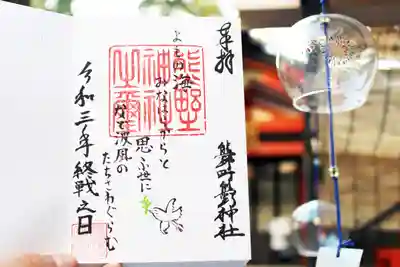 奉拝
神社
よもの海
みなはらからと
思ふ世に
など波風の
たちさわぐらむ
令和三年終戦之日
熊野
神社
之璽